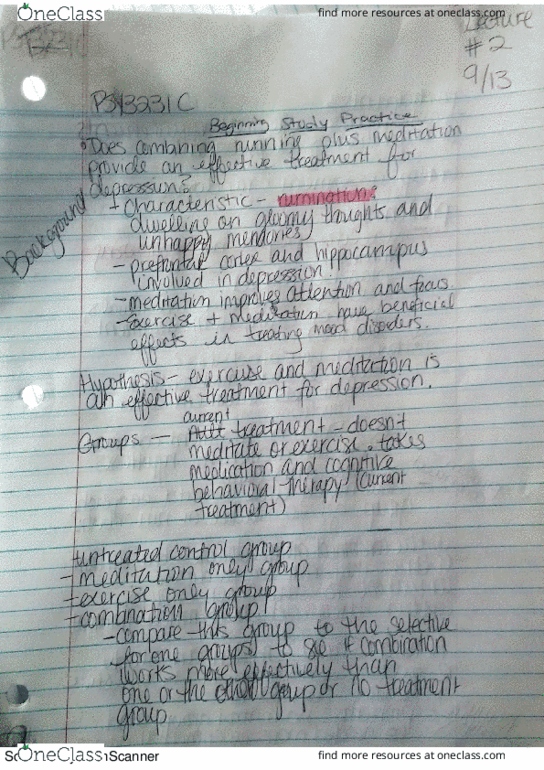 OneClass
find more resources at oneclass.com
Lecture
#2
9/13
PSY3231C
Beginning Study Practice
Does combining running plus meditation
provide an effective treatment for
depression?
Background
+ characteristic - rumination:
dwelling on gloomy thoughts and
unhappy memories
- prefrontal cortex and hippocampus
involved in depression
- meditation improves attention and focus
- exercise + meditation have beneficial
effects in treating mood disorders.
Hypothesis - exercise and meditation is
an effective treatment for depression.
current
Groups - treatment - doesn't
meditate or exercise. takes
medication and cognitive
behavioral therapy (current
treatment)
+ untreated control group
- meditation only group
+ exercise only group
+ combination group
- compare this group to the selective
for one groups to see if combination
works more effectively than
one or the other group or no treatment
group
OneClass
Scanner
find more resources at oneclass.com